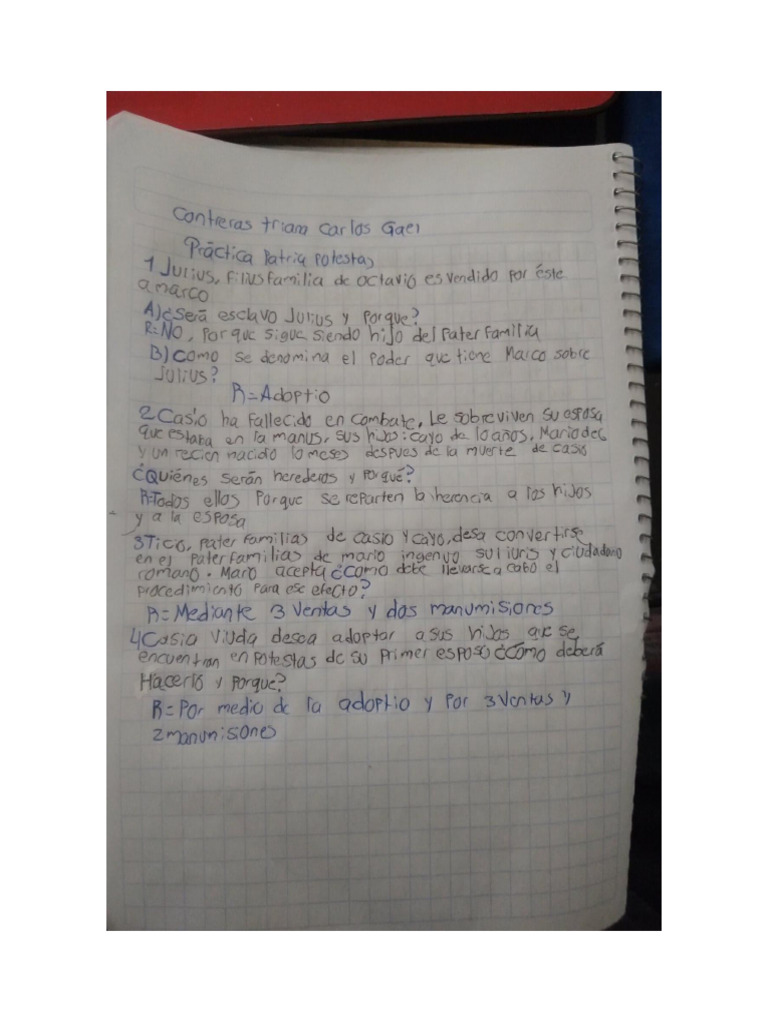 Contreras triana Carlos Gael
Práctica Patria Potestas
1 Julius, Filiusfamilia de octavio es vendido por éste
a marco
A) ¿Será esclavo Julius y Porque?
R=NO, Porque sigue siendo hijo del Paterfamilia
B) Como se denomina el Poder que tiene Marco sobre
Julius?
R=Adoptio
2 Casio ha Fallecido en combate, Le sobreviven su esposa
que estaba en la manus, sus hijos: cayo de 10 años, Mario de 6
y un recion nacido 10 meses despues de la muerte de casio
¿Quiénes serán herederos y Porqué?
R=Todos ellos Porque se reparten la herencia a los hijos
y a la esposa
3 Ticio, Pater Familias de casio y cayo, desa convertirse
en el Paterfamilias de mario ingenuo sui iuris y ciudadano
romano. Mario acepta ¿como debe llevarse a cabo el
procedimiento Para ese efecto?
R=Mediante 3 ventas y dos manumisiones
4 Casia viuda desea adoptar a sus hijos que se
encuentran en Potestas de su Primer esposo ¿Cómo deberá
Hacerlo y Porque?
R=Por medio de la adoptio y Por 3 ventas y
2 manumisiones